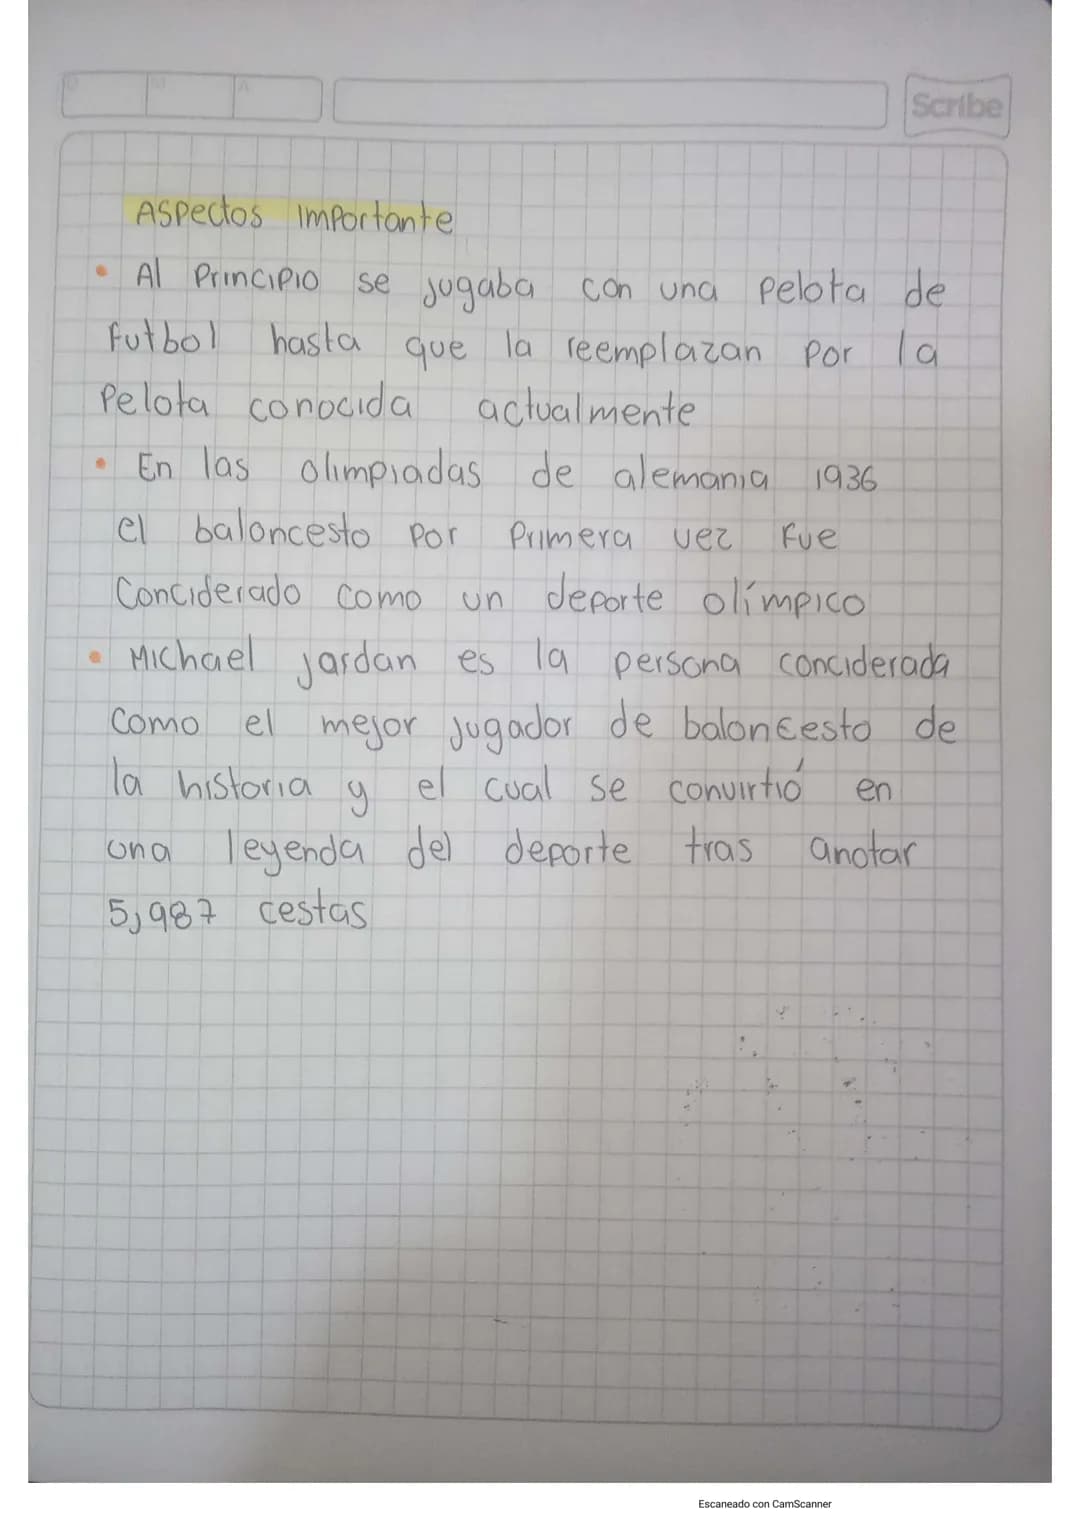 D M A
Scribe
Aspectos importante
• Al Principio se jugaba con una pelota de
futbol hasta que la reemplazan por la
Pelota conocida actualmente
• En las olimpiadas de alemania 1936
el baloncesto por Primera vez fue
Conciderado como un deporte olímpico
• Michael jardan es la persona conciderada
como el mejor jugador de baloncesto de
la historia y el cual se convirtió en
una leyenda del deporte tras anotar
5,987 cestas
Escaneado con CamScanner